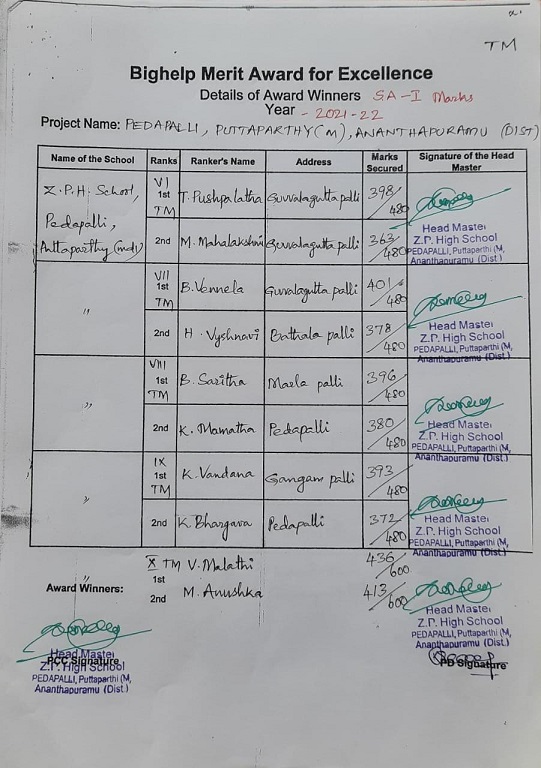 TM
Bighelp Merit Award for Excellence
Details of Award Winners SA-I Marks
Year - 2021-22
Project Name: PEDAPALLI, PUTTAPARTHY(M), ANANTHAPURAMU (DIST)
Name of the School Ranks Ranker's Name Address Marks Secured Signature of the Head Master
Z.P.H. School, Pedapalli, Puttaparthy (mdl) VI 1st TM T. Pushpalatha Guvvalagutta palli 398/480
2nd M. Mahalakshmi Guvvalagutta palli 363/480
Head Master
Z.P. High School
PEDAPALLI, Puttaparthi (M,
Ananthapuramu (Dist.)
" VII 1st TM B. Vennela Guvvalagutta palli 401/480
2nd H. Vyshnavi Bathala palli 378/480
Head Master
Z.P. High School
PEDAPALLI, Puttaparthi (M,
Ananthapuramu (Dist.)
" VIII 1st TM B. Saritha Marla palli 396/480
2nd K. Mamatha Pedapalli 380/480
Head Master
Z.P. High School
PEDAPALLI, Puttaparthi (M,
Ananthapuramu (Dist.)
" IX 1st TM K. Vandana Gangam palli 373/480
2nd K. Bhargava Pedapalli 372/480
Head Master
Z.P. High School
PEDAPALLI, Puttaparthi (M,
Ananthapuramu (Dist.)
X TM V. Malathi 436/600
1st
Award Winners: " 2nd M. Anushka 413/600
Head Master
Z.P. High School
PEDAPALLI, Puttaparthi (M,
Ananthapuramu (Dist.)
Head Master
PCC Signature
Z.P. High School
PEDAPALLI, Puttaparthi (M,
Ananthapuramu (Dist.)
PD Signature